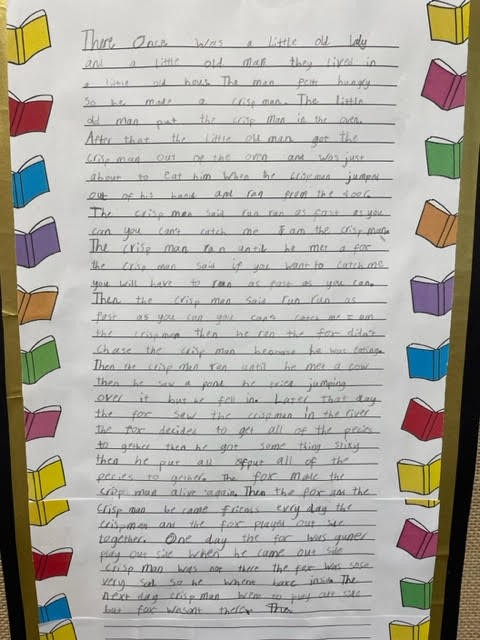 There Once was a little old lady
and a little old man they lived in
a little old hous. The man felt hungry
So he made a crisp man. The little
old man put the crisp man in the oven.
After that the little old man got the
crisp man out of the oven and was just
about to eat him when the crisp man jumped
out of his hand and ran from the door.
The crisp man said run run as fast as you
can you can't catch me I am the crisp man.
The crisp man ran until he met a fox
the crisp man said if you want to catch me
you will have to ran as fast as you can.
Then the crisp man said run run as
fast as you can you can't catch me I am
the crisp man then he ran the fox didn't
chase the crisp man because he was eating.
Then the crisp man ran until he met a cow
then he saw a pond he tried jumping
over it but he fell in. Later that day
the fox saw the crisp man in the river
the fox decided to get all of the pecies
to gether then he got some thing sticky
then he put all of put all of the
pecies to gether. The fox made the
crisp man alive again. Then the fox and the
crisp man be came friends every day the
crisp man and the fox played out side
together. One day the fox was guner
play out side when he came out side
crisp man was not there the fox was
very sad so he whent back inside The
next day crisp man went to play out side
but fox wasn't there. The